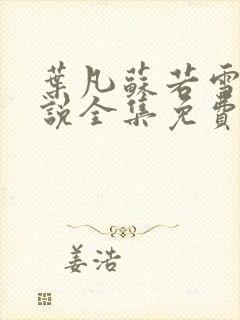 葉凡蘇若雪
說全集免費
姜浩